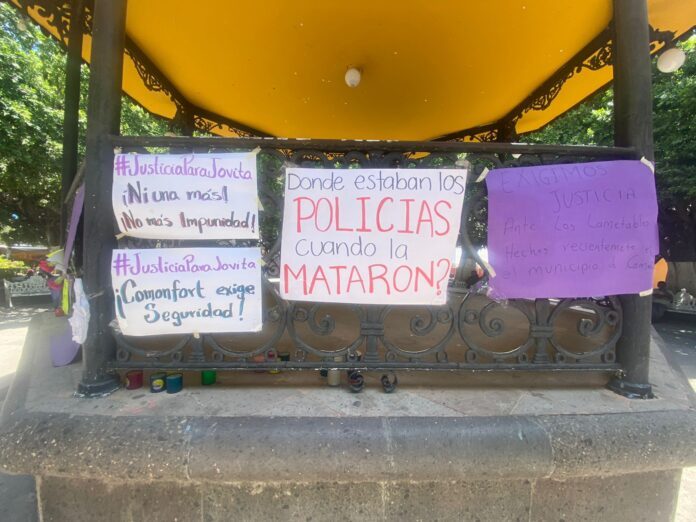 #JusticiaParaJovita
¡Ni una más!
¡No más Impunidad!
#JusticiaParaJovita
¡Comonfort exige
Seguridad!
Donde estaban los
POLICIAS
cuando la
MATARON?
EXIGIMOS
JUSTICIA
Ante Los Lametables
Hechos recientemente en
el municipio d